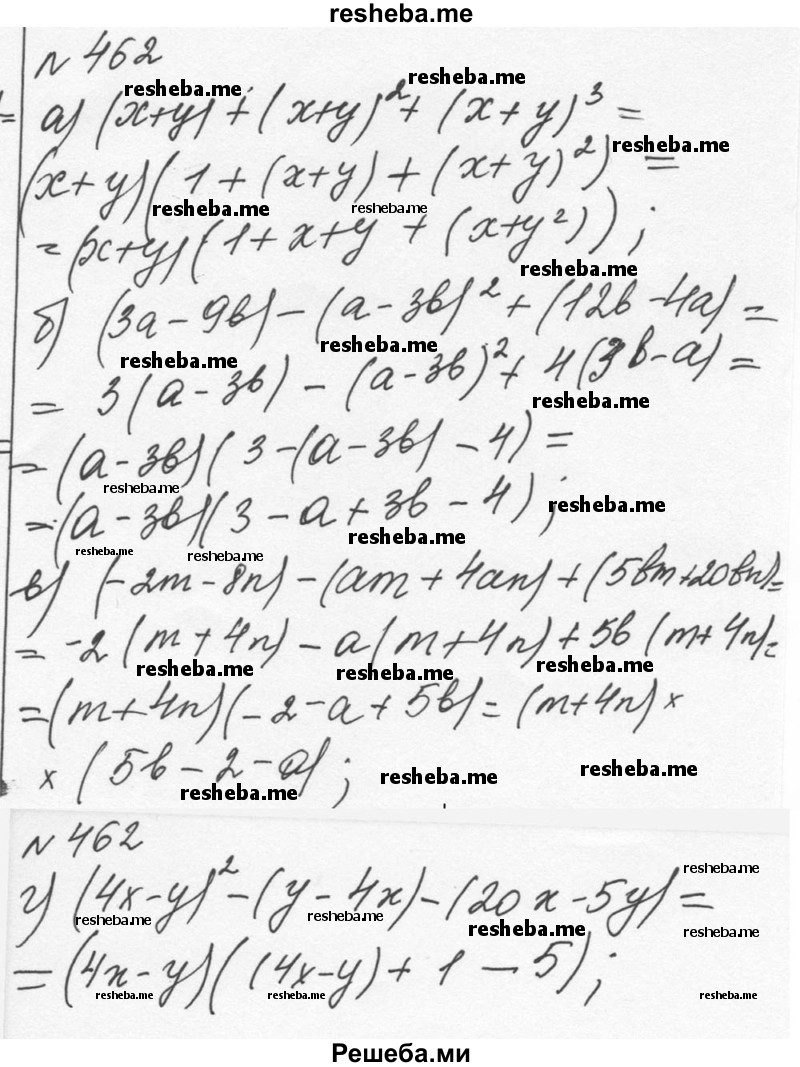 resheba.me
№ 462
resheba.me resheba.me
а) (x+y) + (x+y)² + (x+y)³ =
resheba.me
(x+y)(1 + (x+y) + (x+y)²) =
resheba.me resheba.me
= (x+y)(1 + x+y + (x+y²));
resheba.me
б) (3a - 9b) - (a - 3b)² + (12b - 4a) =
resheba.me resheba.me
= 3(a - 3b) - (a - 3b)² + 4(3b - a) =
resheba.me
= (a - 3b)(3 - (a - 3b) - 4) =
resheba.me
= (a - 3b)(3 - a + 3b - 4);
resheba.me
resheba.me resheba.me resheba.me
в) (-2m - 8n) - (am + 4an) + (5bm + 20bn) =
= -2(m + 4n) - a(m + 4n) + 5b(m + 4n) =
resheba.me resheba.me resheba.me
= (m + 4n)(-2 - a + 5b) = (m + 4n) ×
× (5b - 2 - a);
resheba.me resheba.me resheba.me
№ 462
resheba.me
г) (4x - y)² - (y - 4x) - (20x - 5y) =
resheba.me resheba.me resheba.me resheba.me
= (4x - y)((4x - y) + 1 - 5);
resheba.me resheba.me resheba.me
Решеба.ми